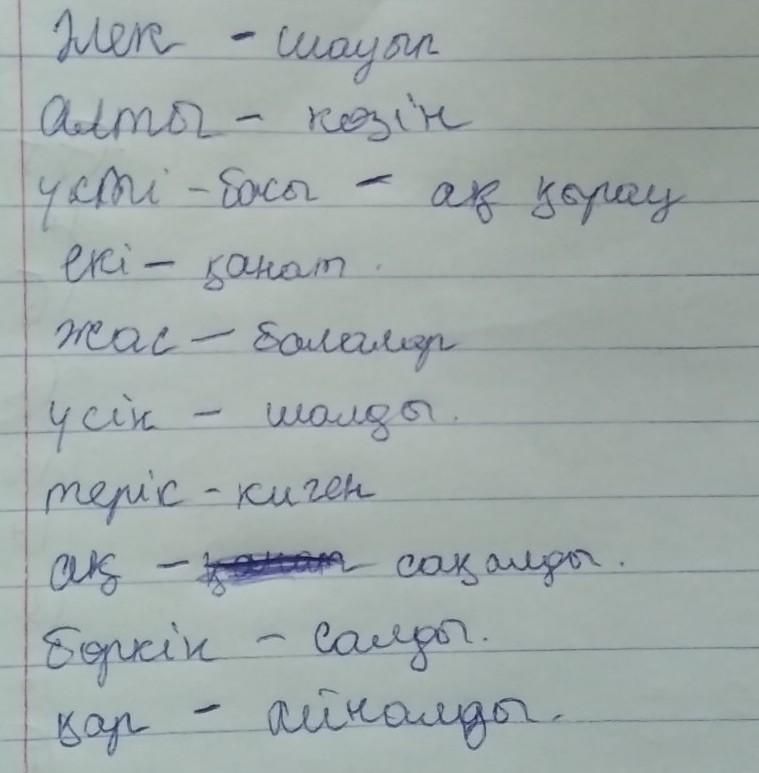 Элек - шауып
Алты - көзін
үсті - басы - ақ қырау
екі - қанат.
жас - балалар
үсік - шалды.
теріс - киген
ақ - сақалды.
бөркін - салды.
қар - айналды.